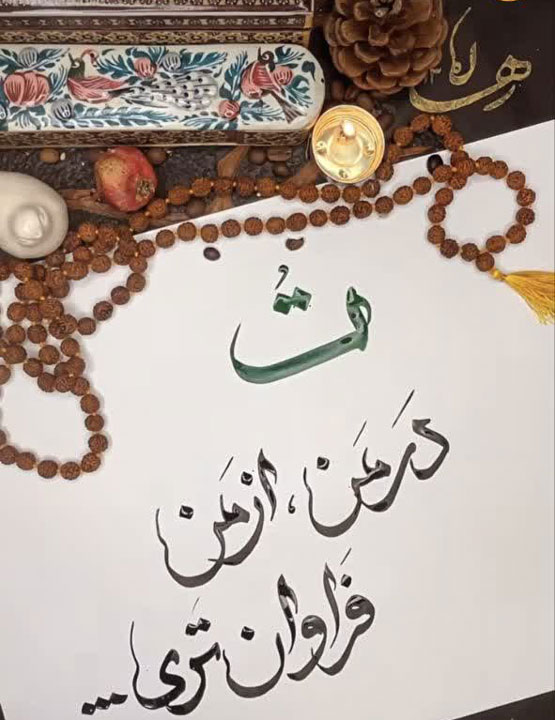 تُ
دَر مَن ، از مَن
فَراوان تَری ...